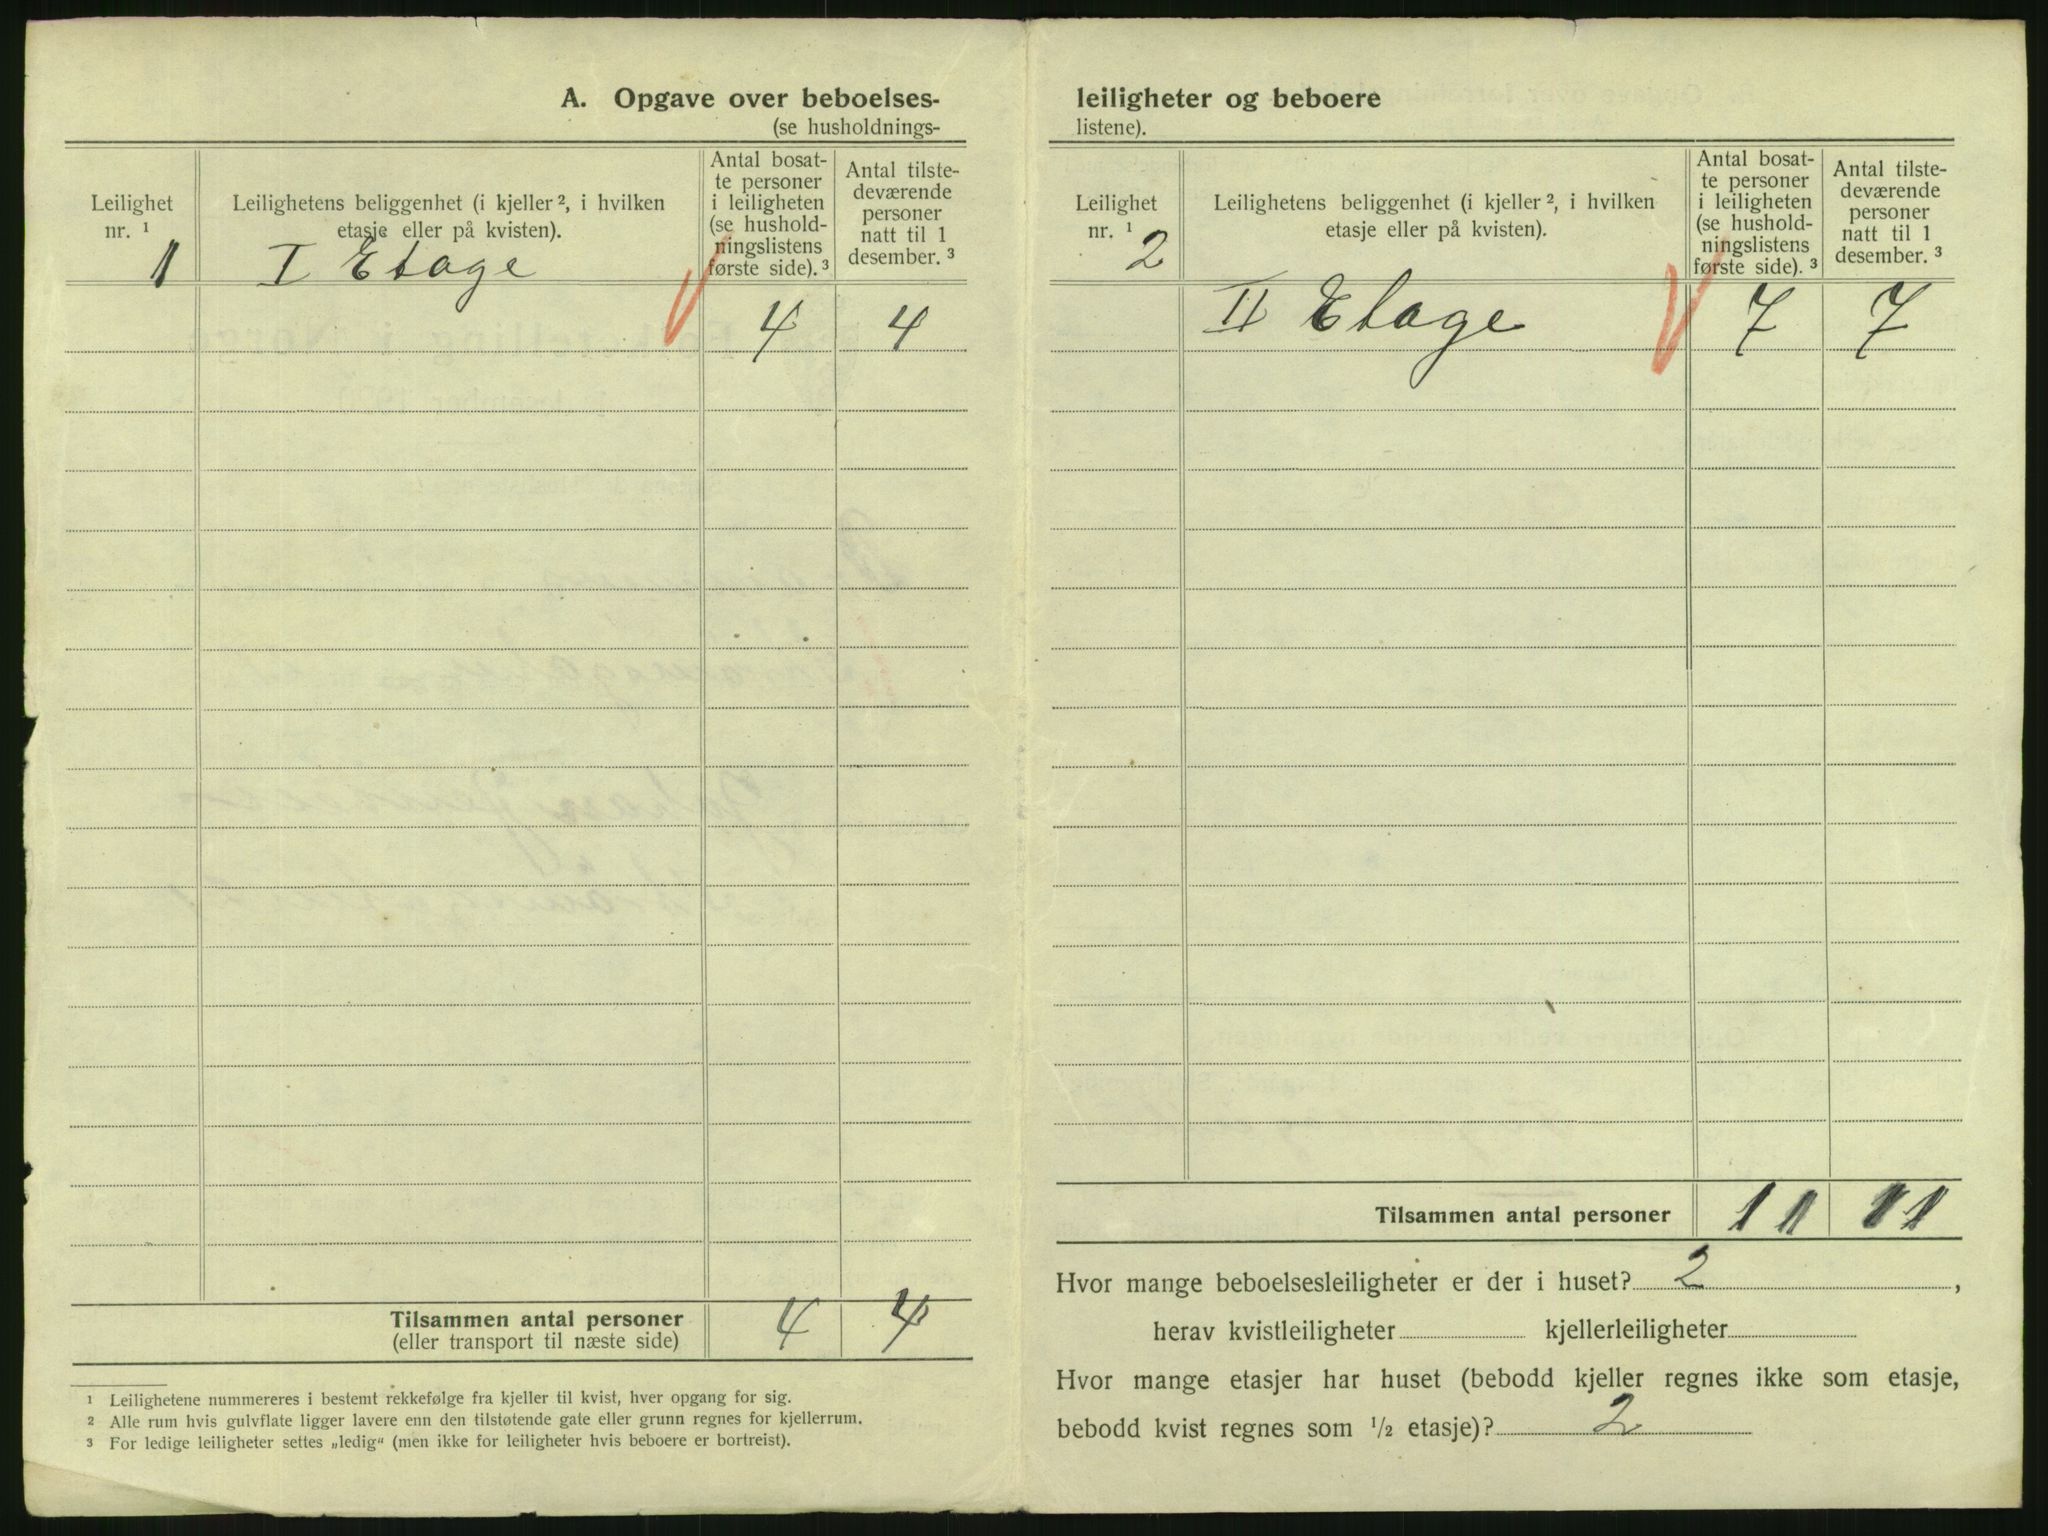 A. Opgave over beboelses-
(se husholdnings-
Leilighet
nr. ¹
Leilighetens beliggenhet (i kjeller ², i hvilken
etasje eller på kvisten).
Antal bosat-
te personer
i leiligheten
(se hushold-
ningslistens
første side). ³
Antal tilste-
deværende
personer
natt til 1
desember. ³
1 I Etage
4 4
Tilsammen antal personer 4 4
(eller transport til næste side)
¹ Leilighetene nummereres i bestemt rekkefølge fra kjeller til kvist, hver opgang for sig.
² Alle rum hvis gulvflate ligger lavere enn den tilstøtende gate eller grunn regnes for kjellerrum.
³ For ledige leiligheter settes „ledig“ (men ikke for leiligheter hvis beboere er bortreist).
leiligheter og beboere
listene).
Leilighet
nr. ¹
Leilighetens beliggenhet (i kjeller ², i hvilken
etasje eller på kvisten).
Antal bosat-
te personer
i leiligheten
(se hushold-
ningslistens
første side). ³
Antal tilste-
deværende
personer
natt til 1
desember. ³
2
II Etage 7 7
Tilsammen antal personer 11 11
Hvor mange beboelsesleiligheter er der i huset? 2,
herav kvistleiligheter kjellerleiligheter
Hvor mange etasjer har huset (bebodd kjeller regnes ikke som etasje,
bebodd kvist regnes som ½ etasje)? 2